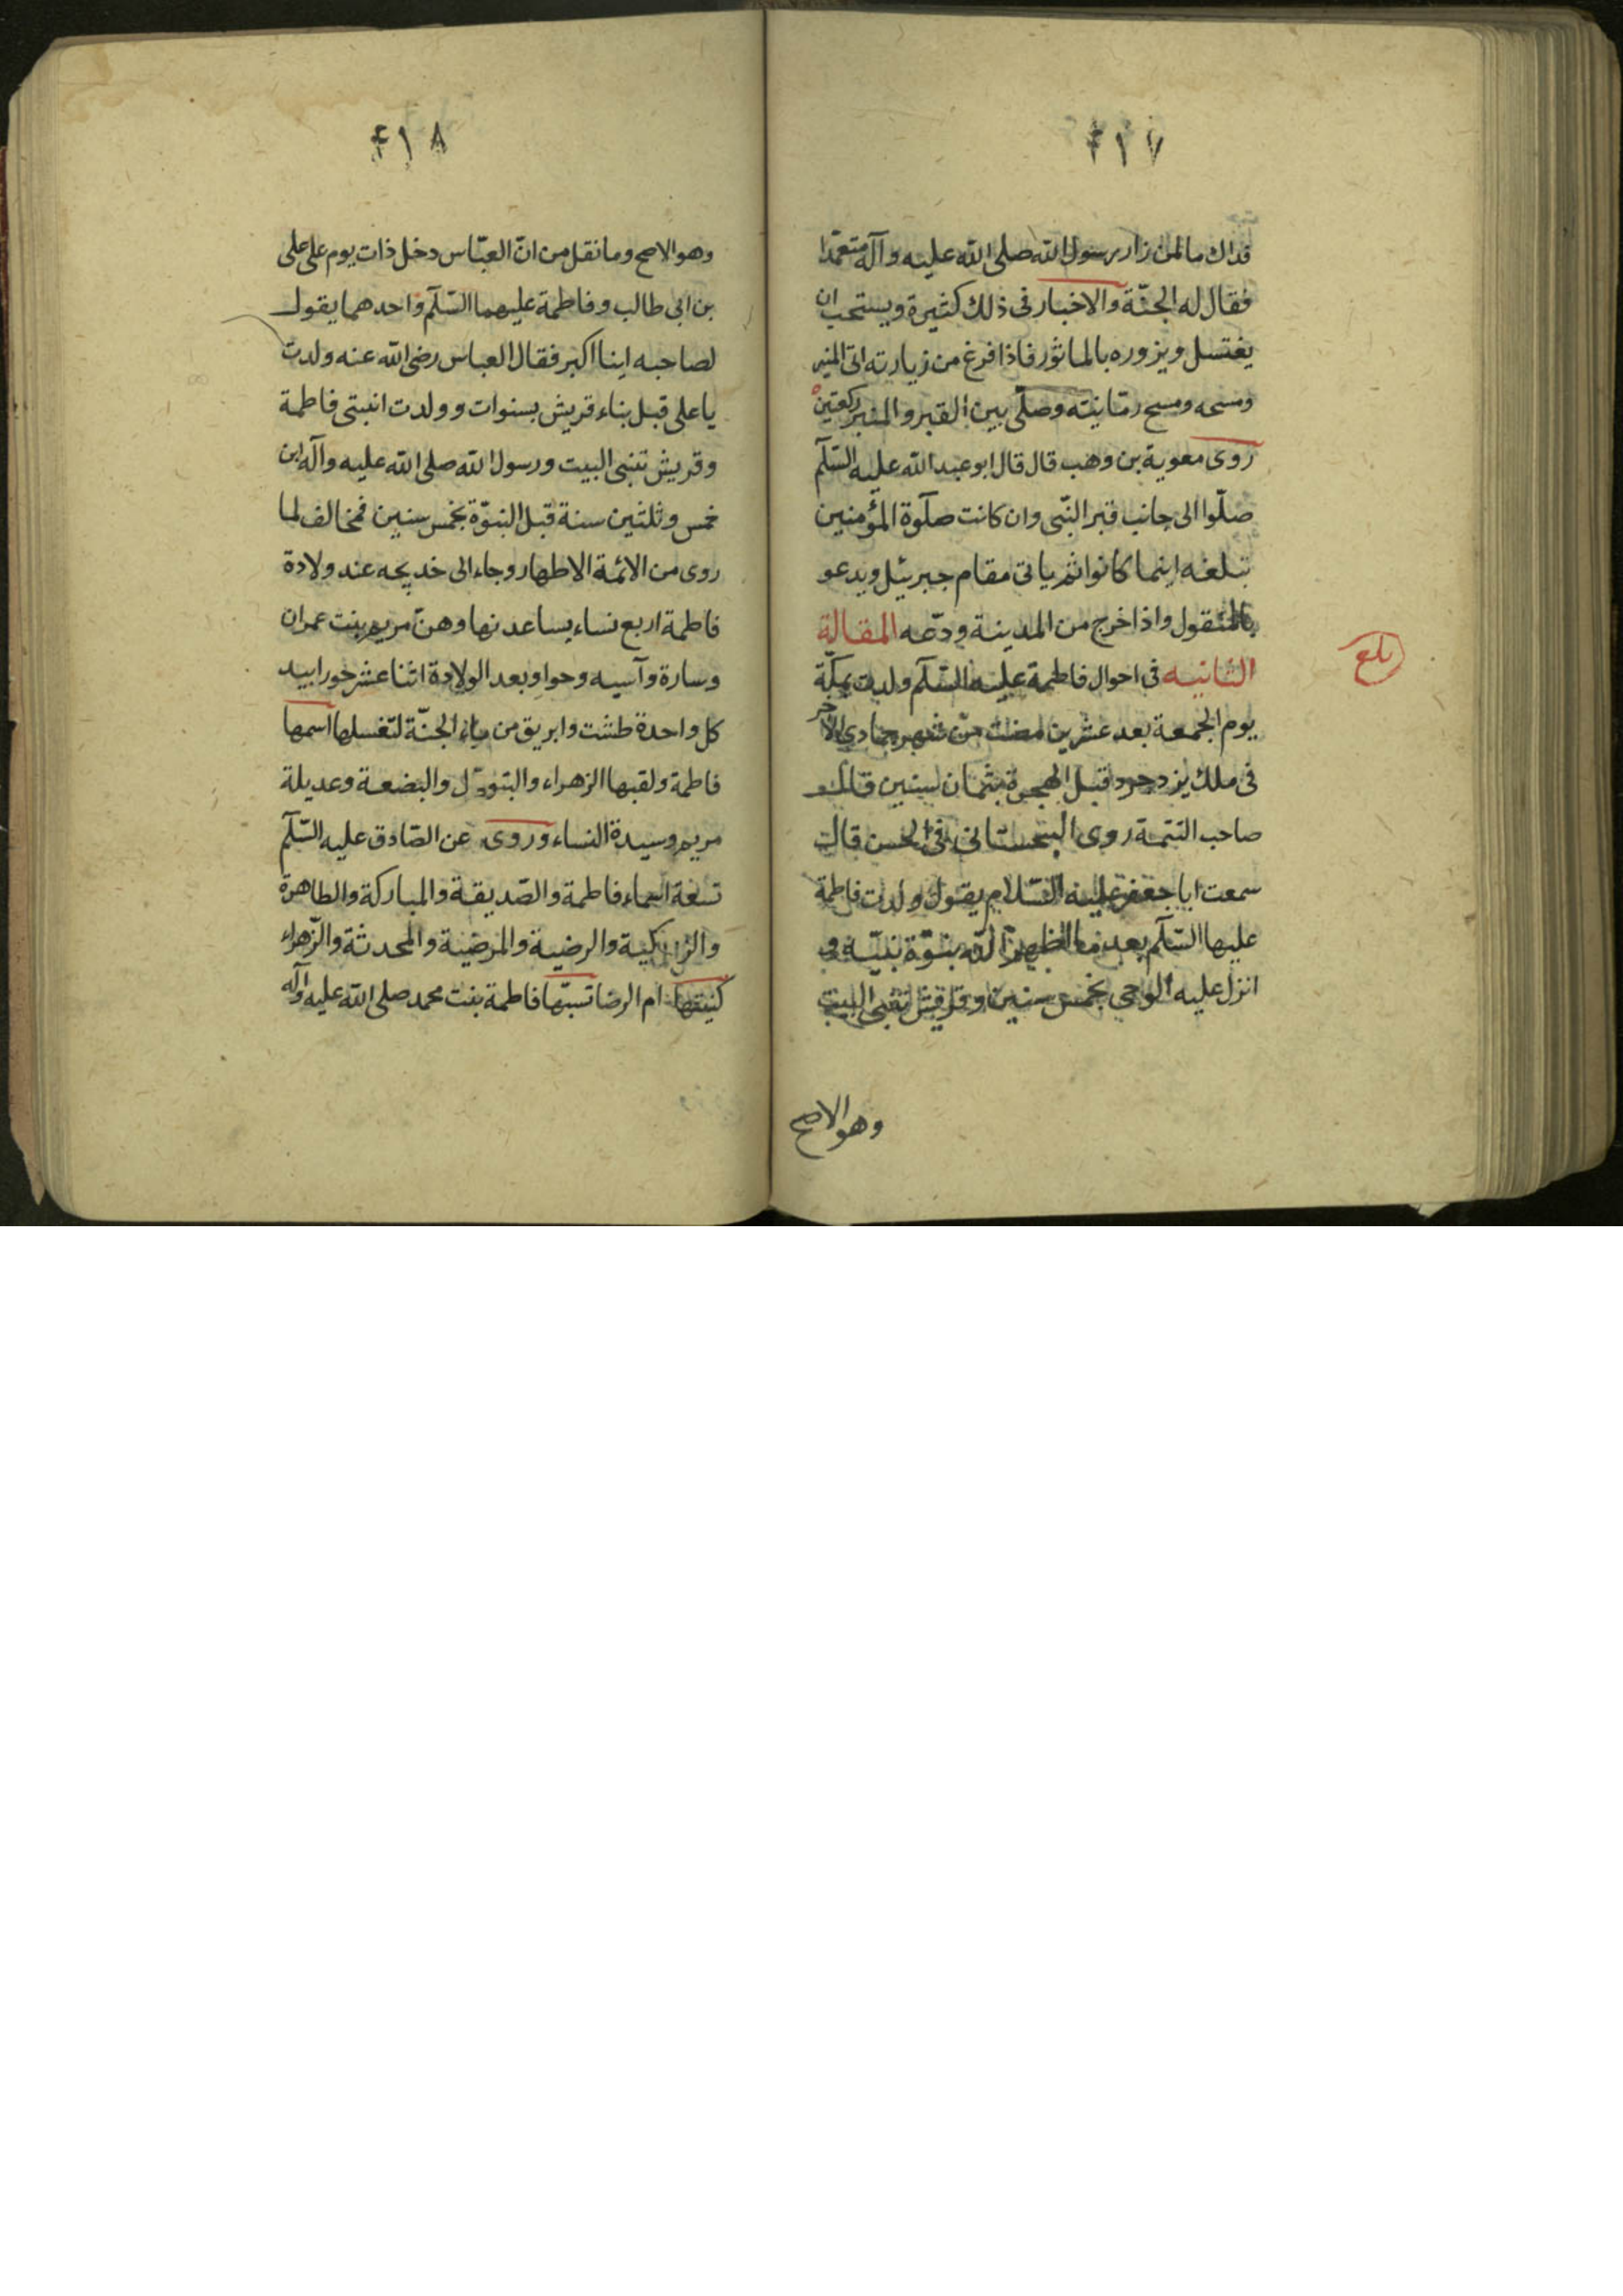 ۴۱۷
فداك ما لمن زار رسول الله صلى الله عليه وآله متعمّدا
فقال له الجنّة والاخبار فى ذلك كثيرة ويستحب ان
يغتسل ويزوره بالماثور فاذا فرغ من زيارته اتى المنبر
ومسحه ومسح رمانيته وصلّى بين القبر والمنبر ركعتين
روى معوية بن وهب قال قال ابو عبد الله عليه السّلم
صلّوا الى جانب قبر النّبى وان كانت صلوة المؤمنين
تبلغه اينما كانوا ثم ياتى مقام جبرئيل ويدعو
بالمنقول واذا خرج من المدينة ودّعه المقالة
الثانيه فى احوال فاطمة عليه السّلم ولدت بمكّة
يوم الجمعة بعد عشرين مضت من شهر جمادى الاخر
فى ملك يزدجرد قبل الهجرة بثمان سنين قال
صاحب التتمة روى السجستانى فى الحسن قال
سمعت ابا جعفر عليه السّلام يقول ولدت فاطمة
عليها السّلم بعد ما اظهر الله بنوّة نبيّه و
انزل عليه الوحى بخمس سنين وقريش تبنى البيت
وهو الاصح
بلغ
۴۱۸
وهو الاصح وما نقل من انّ العبّاس دخل ذات يوم على على
بن ابى طالب وفاطمة عليهما السّلم واحدهما يقول
لصاحبه اينا اكبر فقال العباس رضى الله عنه ولدت
يا على قبل بناء قريش بسنوات وولدت ابنتى فاطمة
وقريش تبنى البيت ورسول الله صلى الله عليه وآله ابن
خمس وثلثين سنة قبل النبوّة بخمس سنين فمخالف لما
روى من الائمة الاطهار وجاء الى خديجه عند ولادة
فاطمة اربع نساء يساعدنها وهنّ مريم بنت عمران
وسارة وآسيه وحوا وبعد الولادة اثنا عشر حورا بيد
كل واحدة طشت وابريق من ماء الجنّة لتغسلها اسمها
فاطمة ولقبها الزهراء والبتول والبضعة وعديلة
مريم وسيدة النساء وروى عن الصّادق عليه السّلم
تسعة اسماء فاطمة والصّديقة والمباركة والطاهرة
والزاكية والرضية والمرضية والمحدثة والزّهراء
كنيتها ام الرضا نسبتها فاطمة بنت محمد صلى الله عليه وآله